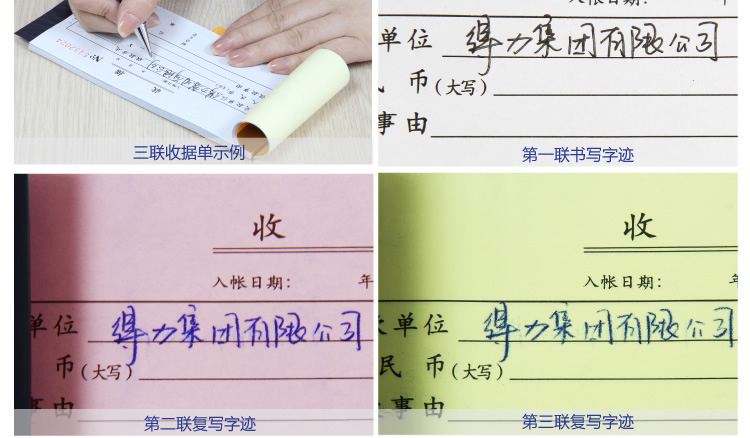 三联收据单示例
单位 得力集团有限公司
币(大写)
事由
第一联书写字迹
收
入帐日期: 年
单位 得力集团有限公司
币(大写)
事由
第二联复写字迹
收
入帐日期: 年
单位 得力集团有限公司
民 币(大写)
事由
第三联复写字迹